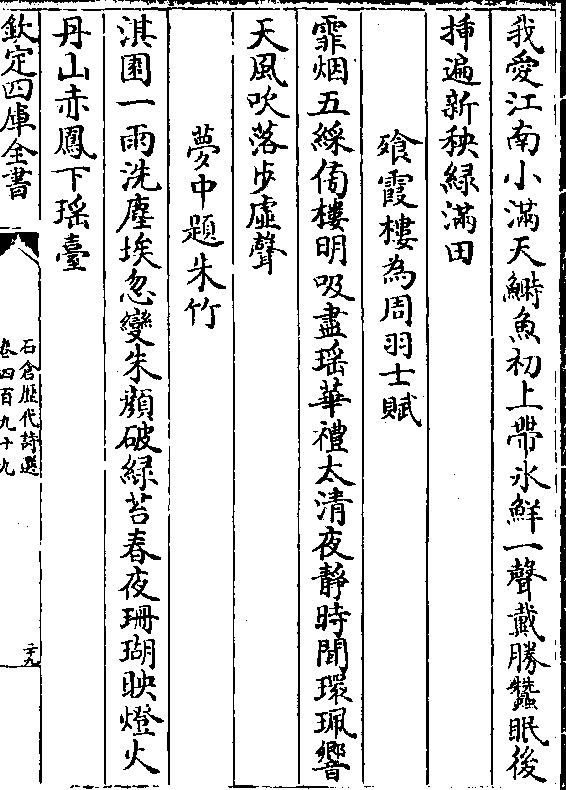 我愛江南小滿天鰣魚初上帶氷鮮一聲戴勝蠶眠後
揷遍新秧緑滿田
飱霞樓為周羽士賦
霏烟五綵倚樓明吸盡瑶華禮太清夜靜時聞環珮響
天風吹落步虛聲
夢中題朱竹
淇園一雨洗塵埃忽變朱顔破緑苔春夜珊瑚映燈火
丹山赤鳳下瑶臺
欽定四庫全書
石倉歴代詩選
卷四百九十九
二十九